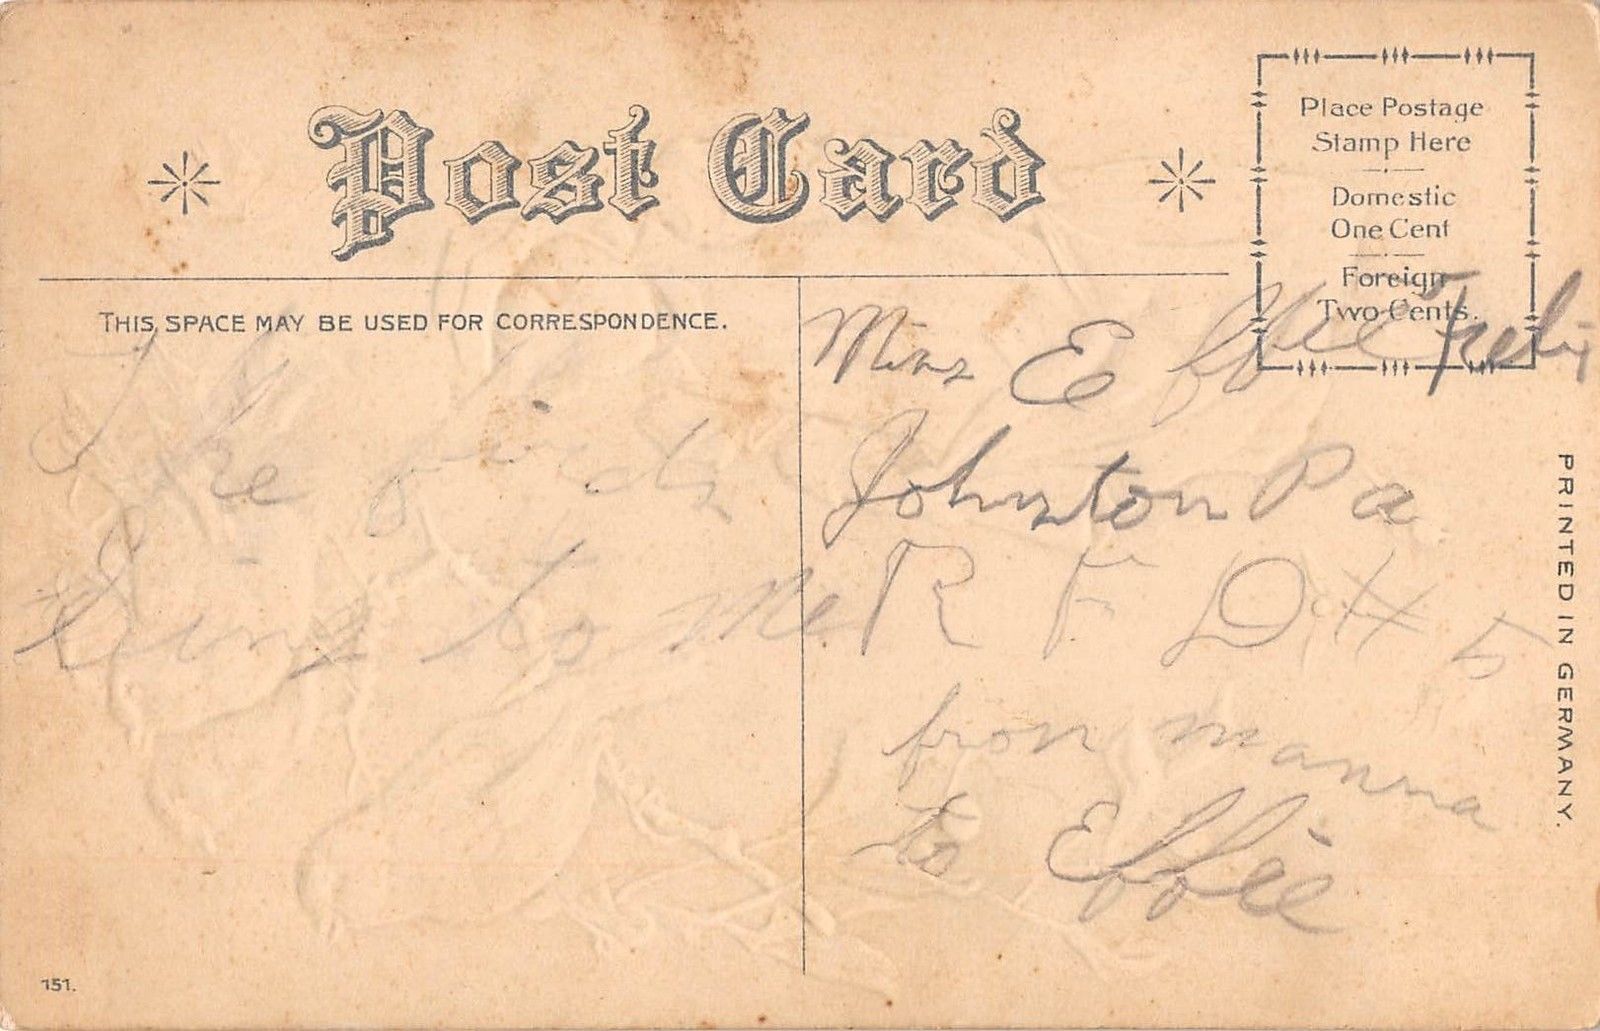 Post Card
Place Postage
Stamp Here
Domestic
One Cent
Foreign
Two Cents.
THIS SPACE MAY BE USED FOR CORRESPONDENCE.
The birds
sing to me
Miss Effie
Johnston Pa
R F D # 5
from mamma
to Effie
PRINTED IN GERMANY.
151.